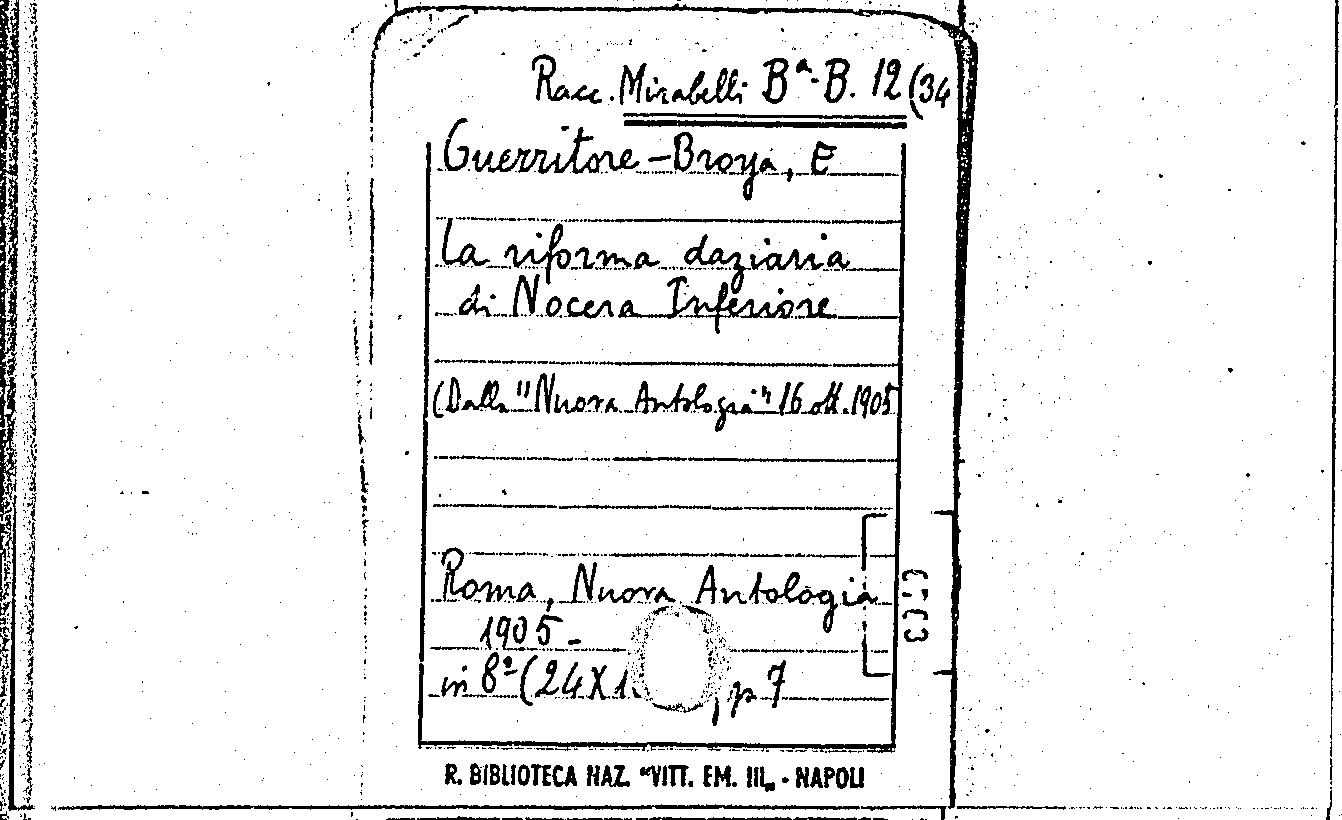 Racc. Mirabelli Bª-B. 12 (34
Guerritore-Broya, E
La riforma daziaria
di Nocera Inferiore
(Dalla "Nuova Antologia" 16 ott. 1905
Roma, Nuova Antologia
1905-
in 8º (24 X 1 , p 7
R. BIBLIOTECA NAZ. "VITT. EM. III„ - NAPOLI